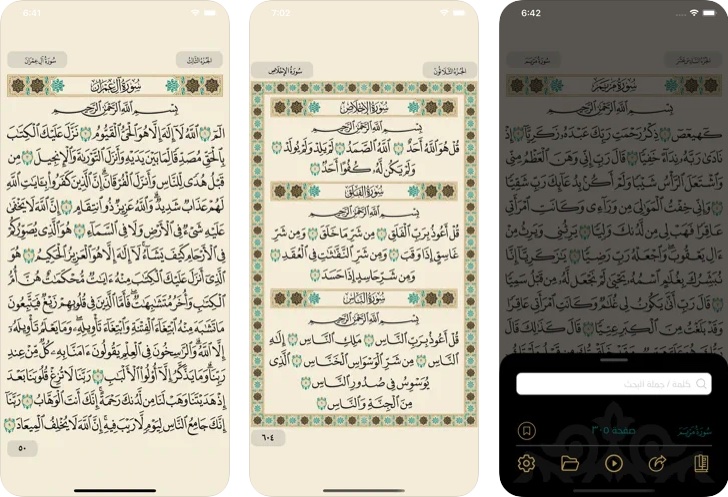 6:41
سُورَةُ آلِ عِمْرَانَ
الجُزْءُ الثَّالِثُ
سُورَةُ آلِ عِمْرَانَ
بِسْمِ اللَّهِ الرَّحْمَٰنِ الرَّحِيمِ
الٓمٓ ۝١ ٱللَّهُ لَآ إِلَٰهَ إِلَّا هُوَ ٱلْحَىُّ ٱلْقَيُّومُ ۝٢ نَزَّلَ عَلَيْكَ ٱلْكِتَٰبَ
بِٱلْحَقِّ مُصَدِّقًا لِّمَا بَيْنَ يَدَيْهِ وَأَنزَلَ ٱلتَّوْرَىٰةَ وَٱلْإِنجِيلَ ۝٣ مِن
قَبْلُ هُدًى لِّلنَّاسِ وَأَنزَلَ ٱلْفُرْقَانَ إِنَّ ٱلَّذِينَ كَفَرُوا۟ بِـَٔايَٰتِ ٱللَّهِ
لَهُمْ عَذَابٌ شَدِيدٌ وَٱللَّهُ عَزِيزٌ ذُو ٱنتِقَامٍ ۝٤ إِنَّ ٱللَّهَ لَا يَخْفَىٰ
عَلَيْهِ شَىْءٌ فِى ٱلْأَرْضِ وَلَا فِى ٱلسَّمَآءِ ۝٥ هُوَ ٱلَّذِى يُصَوِّرُكُمْ
فِى ٱلْأَرْحَامِ كَيْفَ يَشَآءُ لَآ إِلَٰهَ إِلَّا هُوَ ٱلْعَزِيزُ ٱلْحَكِيمُ ۝٦ هُوَ
ٱلَّذِىٓ أَنزَلَ عَلَيْكَ ٱلْكِتَٰبَ مِنْهُ ءَايَٰتٌ مُّحْكَمَٰتٌ هُنَّ أُمُّ
ٱلْكِتَٰبِ وَأُخَرُ مُتَشَٰبِهَٰتٌ فَأَمَّا ٱلَّذِينَ فِى قُلُوبِهِمْ زَيْغٌ فَيَتَّبِعُونَ
مَا تَشَٰبَهَ مِنْهُ ٱبْتِغَآءَ ٱلْفِتْنَةِ وَٱبْتِغَآءَ تَأْوِيلِهِۦ وَمَا يَعْلَمُ تَأْوِيلَهُۥٓ
إِلَّا ٱللَّهُ وَٱلرَّٰسِخُونَ فِى ٱلْعِلْمِ يَقُولُونَ ءَامَنَّا بِهِۦ كُلٌّ مِّنْ عِندِ
رَبِّنَا وَمَا يَذَّكَّرُ إِلَّآ أُو۟لُوا۟ ٱلْأَلْبَٰبِ ۝٧ رَبَّنَا لَا تُزِغْ قُلُوبَنَا بَعْدَ
إِذْ هَدَيْتَنَا وَهَبْ لَنَا مِن لَّدُنكَ رَحْمَةً إِنَّكَ أَنتَ ٱلْوَهَّابُ ۝٨ رَبَّنَآ
إِنَّكَ جَامِعُ ٱلنَّاسِ لِيَوْمٍ لَّا رَيْبَ فِيهِ إِنَّ ٱللَّهَ لَا يُخْلِفُ ٱلْمِيعَادَ ۝٩
٥٠
7:02
سُورَةُ الإِخْلَاصِ
الجُزْءُ الثَّلَاثُونَ
سُورَةُ الإِخْلَاصِ
بِسْمِ اللَّهِ الرَّحْمَٰنِ الرَّحِيمِ
قُلْ هُوَ ٱللَّهُ أَحَدٌ ۝١ ٱللَّهُ ٱلصَّمَدُ ۝٢ لَمْ يَلِدْ وَلَمْ يُولَدْ ۝٣
وَلَمْ يَكُن لَّهُۥ كُفُوًا أَحَدٌۢ ۝٤
سُورَةُ الفَلَقِ
بِسْمِ اللَّهِ الرَّحْمَٰنِ الرَّحِيمِ
قُلْ أَعُوذُ بِرَبِّ ٱلْفَلَقِ ۝١ مِن شَرِّ مَا خَلَقَ ۝٢ وَمِن شَرِّ
غَاسِقٍ إِذَا وَقَبَ ۝٣ وَمِن شَرِّ ٱلنَّفَّٰثَٰتِ فِى ٱلْعُقَدِ ۝٤
وَمِن شَرِّ حَاسِدٍ إِذَا حَسَدَ ۝٥
سُورَةُ النَّاسِ
بِسْمِ اللَّهِ الرَّحْمَٰنِ الرَّحِيمِ
قُلْ أَعُوذُ بِرَبِّ ٱلنَّاسِ ۝١ مَلِكِ ٱلنَّاسِ ۝٢ إِلَٰهِ
ٱلنَّاسِ ۝٣ مِن شَرِّ ٱلْوَسْوَاسِ ٱلْخَنَّاسِ ۝٤ ٱلَّذِى
يُوَسْوِسُ فِى صُدُورِ ٱلنَّاسِ ۝٥
مِنَ ٱلْجِنَّةِ وَٱلنَّاسِ ۝٦
٦٠٤
6:42
سُورَةُ مَرْيَمَ
الجُزْءُ السَّادِسَ عَشَرَ
سُورَةُ مَرْيَمَ
بِسْمِ اللَّهِ الرَّحْمَٰنِ الرَّحِيمِ
كٓهيعٓصٓ ۝١ ذِكْرُ رَحْمَتِ رَبِّكَ عَبْدَهُۥ زَكَرِيَّآ ۝٢ إِذْ
نَادَىٰ رَبَّهُۥ نِدَآءً خَفِيًّا ۝٣ قَالَ رَبِّ إِنِّى وَهَنَ ٱلْعَظْمُ مِنِّى
وَٱشْتَعَلَ ٱلرَّأْسُ شَيْبًا وَلَمْ أَكُنۢ بِدُعَآئِكَ رَبِّ شَقِيًّا
۝٤ وَإِنِّى خِفْتُ ٱلْمَوَٰلِىَ مِن وَرَآءِى وَكَانَتِ ٱمْرَأَتِى
عَاقِرًا فَهَبْ لِى مِن لَّدُنكَ وَلِيًّا ۝٥ يَرِثُنِى وَيَرِثُ مِنْ
ءَالِ يَعْقُوبَ وَٱجْعَلْهُ رَبِّ رَضِيًّا ۝٦ يَٰزَكَرِيَّآ إِنَّا
نُبَشِّرُكَ بِغُلَٰمٍ ٱسْمُهُۥ يَحْيَىٰ لَمْ نَجْعَل لَّهُۥ مِن قَبْلُ سَمِيًّا
۝٧ قَالَ رَبِّ أَنَّىٰ يَكُونُ لِى غُلَٰمٌ وَكَانَتِ ٱمْرَأَتِى عَاقِرًا
وَقَدْ بَلَغْتُ مِنَ ٱلْكِبَرِ عِتِيًّا ۝٨ قَالَ كَذَٰلِكَ قَالَ
كلمة / جملة البحث
سُورَةُ مَرْيَمَ
صفحة ٣٠٥